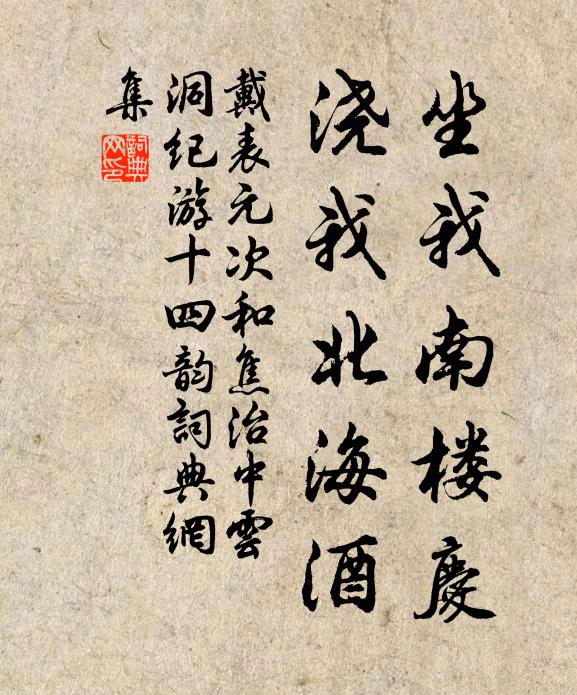 坐我南楼慶
浇我北海酒
戴表元次和焦治中雲
洞纪游十四韵詞典網
集
詞典
网印